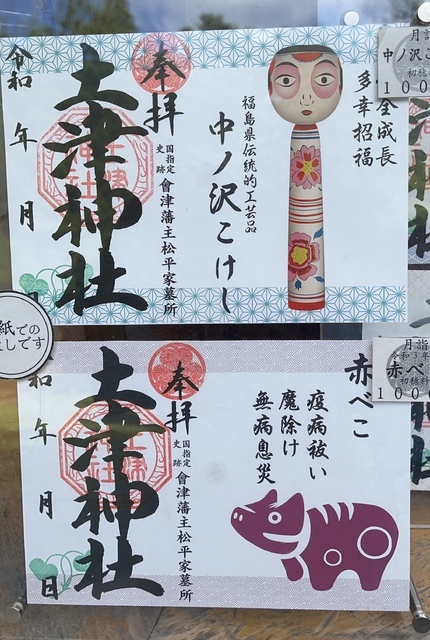 全成長
多幸招福
福島県伝統的工芸品
中ノ沢こけし
奉拝
国指定
史跡
會津藩主松平家墓所
土津神社
令和
年
月
月詣
中ノ沢こ
初穂
100
紙での
しです
赤べこ
疫病祓い
魔除け
無病息災
奉拝
国指定
史跡
會津藩主松平家墓所
土津神社
和
年
月
日
月詣
令和3年
赤べ
初穂料
100